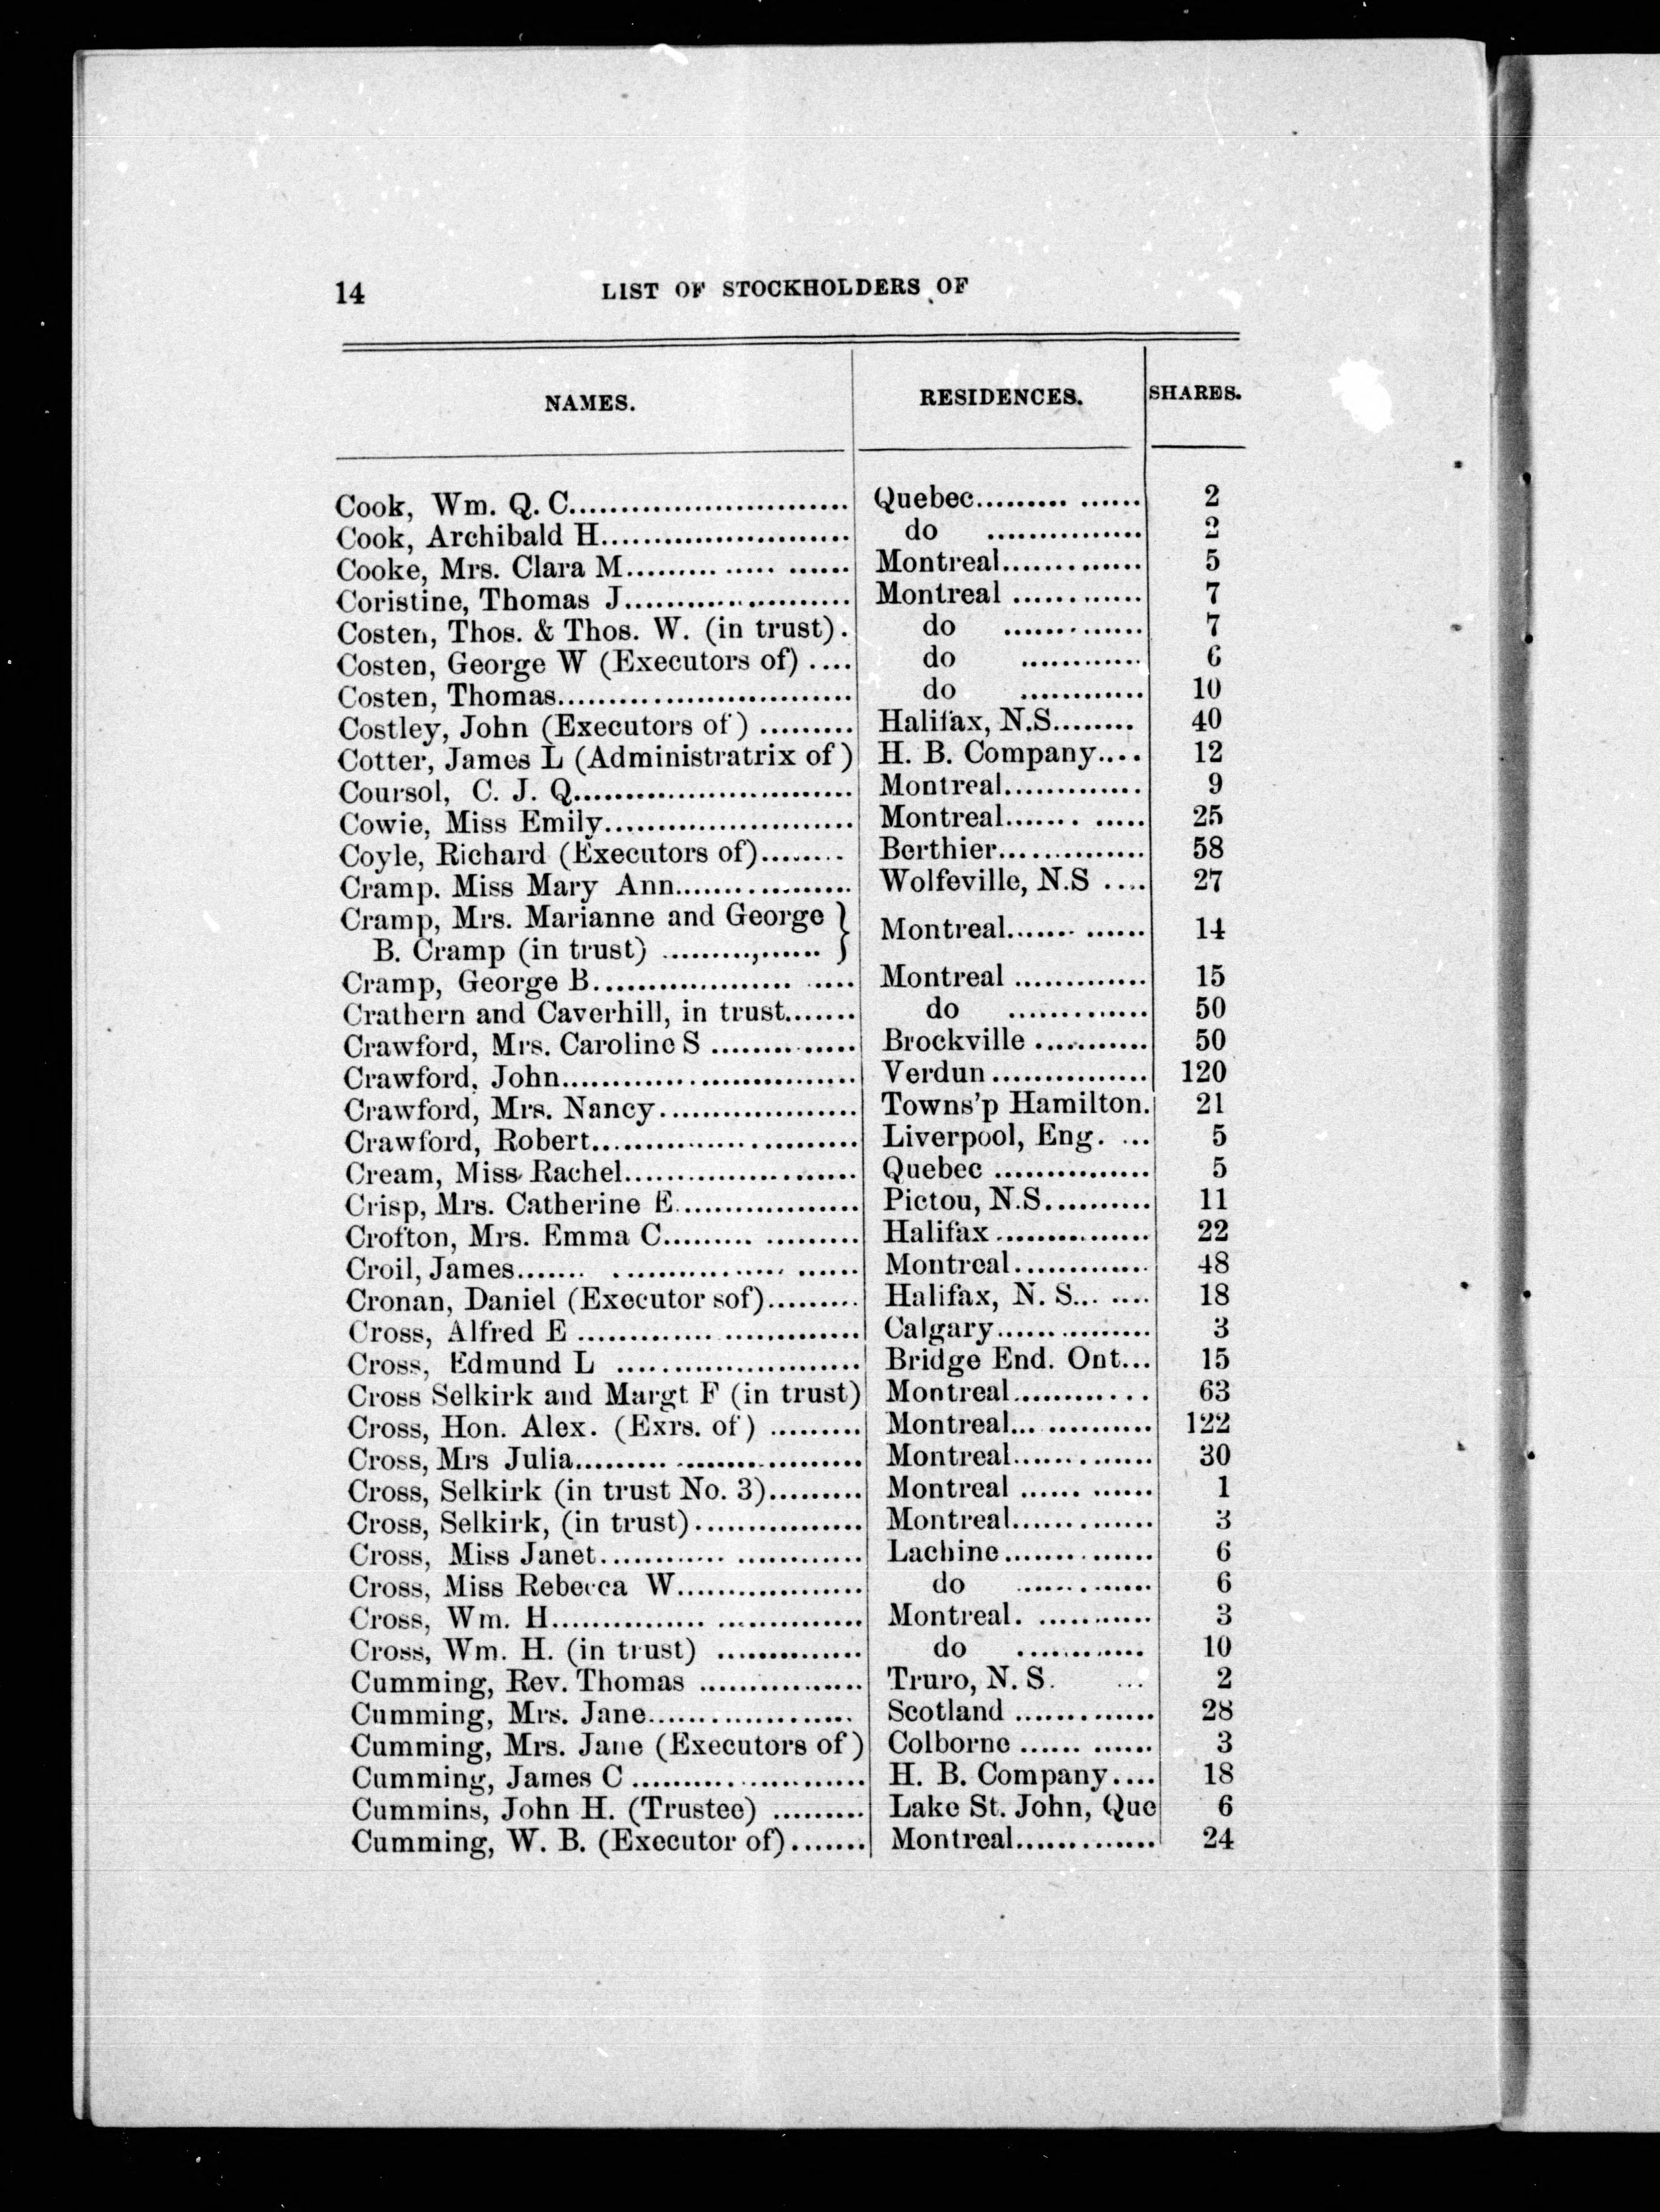 14 LIST OF STOCKHOLDERS OF
NAMES. RESIDENCES. SHARES.
Cook, Wm. Q. C............................ Quebec......... ...... 2
Cook, Archibald H........................ do ............... 2
Cooke, Mrs. Clara M......... ..... ...... Montreal............. 5
Coristine, Thomas J...................... Montreal ............ 7
Costen, Thos. & Thos. W. (in trust). do ............. 7
Costen, George W (Executors of) .... do ............ 6
Costen, Thomas............................ do ............ 10
Costley, John (Executors of) ......... Halifax, N.S........ 40
Cotter, James L (Administratrix of) H. B. Company.... 12
Coursol, C. J. Q........................... Montreal............. 9
Cowie, Miss Emily........................ Montreal....... ..... 25
Coyle, Richard (Executors of)........ Berthier.............. 58
Cramp. Miss Mary Ann................. Wolfeville, N.S .... 27
Cramp, Mrs. Marianne and George }
B. Cramp (in trust) .........,...... } Montreal....... ...... 14
Cramp, George B................... ..... Montreal ............. 15
Crathern and Caverhill, in trust....... do ............. 50
Crawford, Mrs. Caroline S .............. Brockville ........... 50
Crawford, John............................ Verdun ............... 120
Crawford, Mrs. Nancy................... Towns'p Hamilton. 21
Crawford, Robert......................... Liverpool, Eng. ... 5
Cream, Miss Rachel...................... Quebec ............... 5
Crisp, Mrs. Catherine E................. Pictou, N.S.......... 11
Crofton, Mrs. Emma C......... ......... Halifax ............... 22
Croil, James....... ................. ...... Montreal............. 48
Cronan, Daniel (Executor sof)......... Halifax, N. S... .... 18
Cross, Alfred E ........................... Calgary............... 3
Cross, Edmund L ....................... Bridge End. Ont... 15
Cross Selkirk and Margt. F (in trust) Montreal............ 63
Cross, Hon. Alex. (Exrs. of) ......... Montreal... .......... 122
Cross, Mrs Julia......... .................. Montreal............. 30
Cross, Selkirk (in trust No. 3)......... Montreal ...... ...... 1
Cross, Selkirk, (in trust)................ Montreal............. 3
Cross, Miss Janet............ ............ Lachine.............. 6
Cross, Miss Rebecca W.................. do ............. 6
Cross, Wm. H............... .............. Montreal. ........... 3
Cross, Wm. H. (in trust) .............. do ............ 10
Cumming, Rev. Thomas ................ Truro, N. S. ... 2
Cumming, Mrs. Jane.................... Scotland ............. 28
Cumming, Mrs. Jane (Executors of) Colborne ...... ...... 3
Cumming, James C ...................... H. B. Company.... 18
Cummins, John H. (Trustee) ......... Lake St. John, Que 6
Cumming, W. B. (Executor of)....... Montreal............. 24